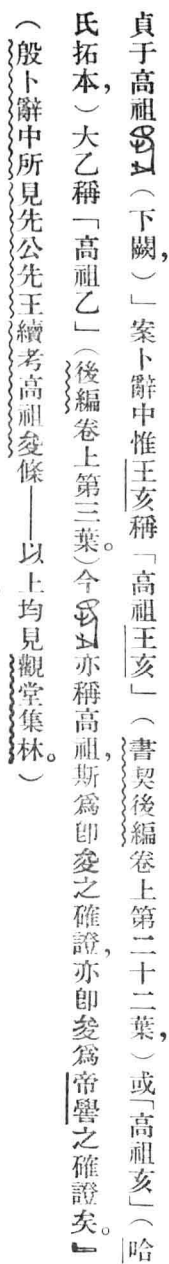 貞于高祖(下闕,)」案卜辭中惟王亥稱「高祖王亥」(書契後編卷上第二十二葉,)或「高祖亥」(哈
氏拓本,)大乙稱「高祖乙」(後編卷上第三葉。)今亦稱高祖,斯爲卽夋之確證,亦卽夋爲帝嚳之確證矣。』
(殷卜辭中所見先公先王續考高祖夋條——以上均見觀堂集林。)